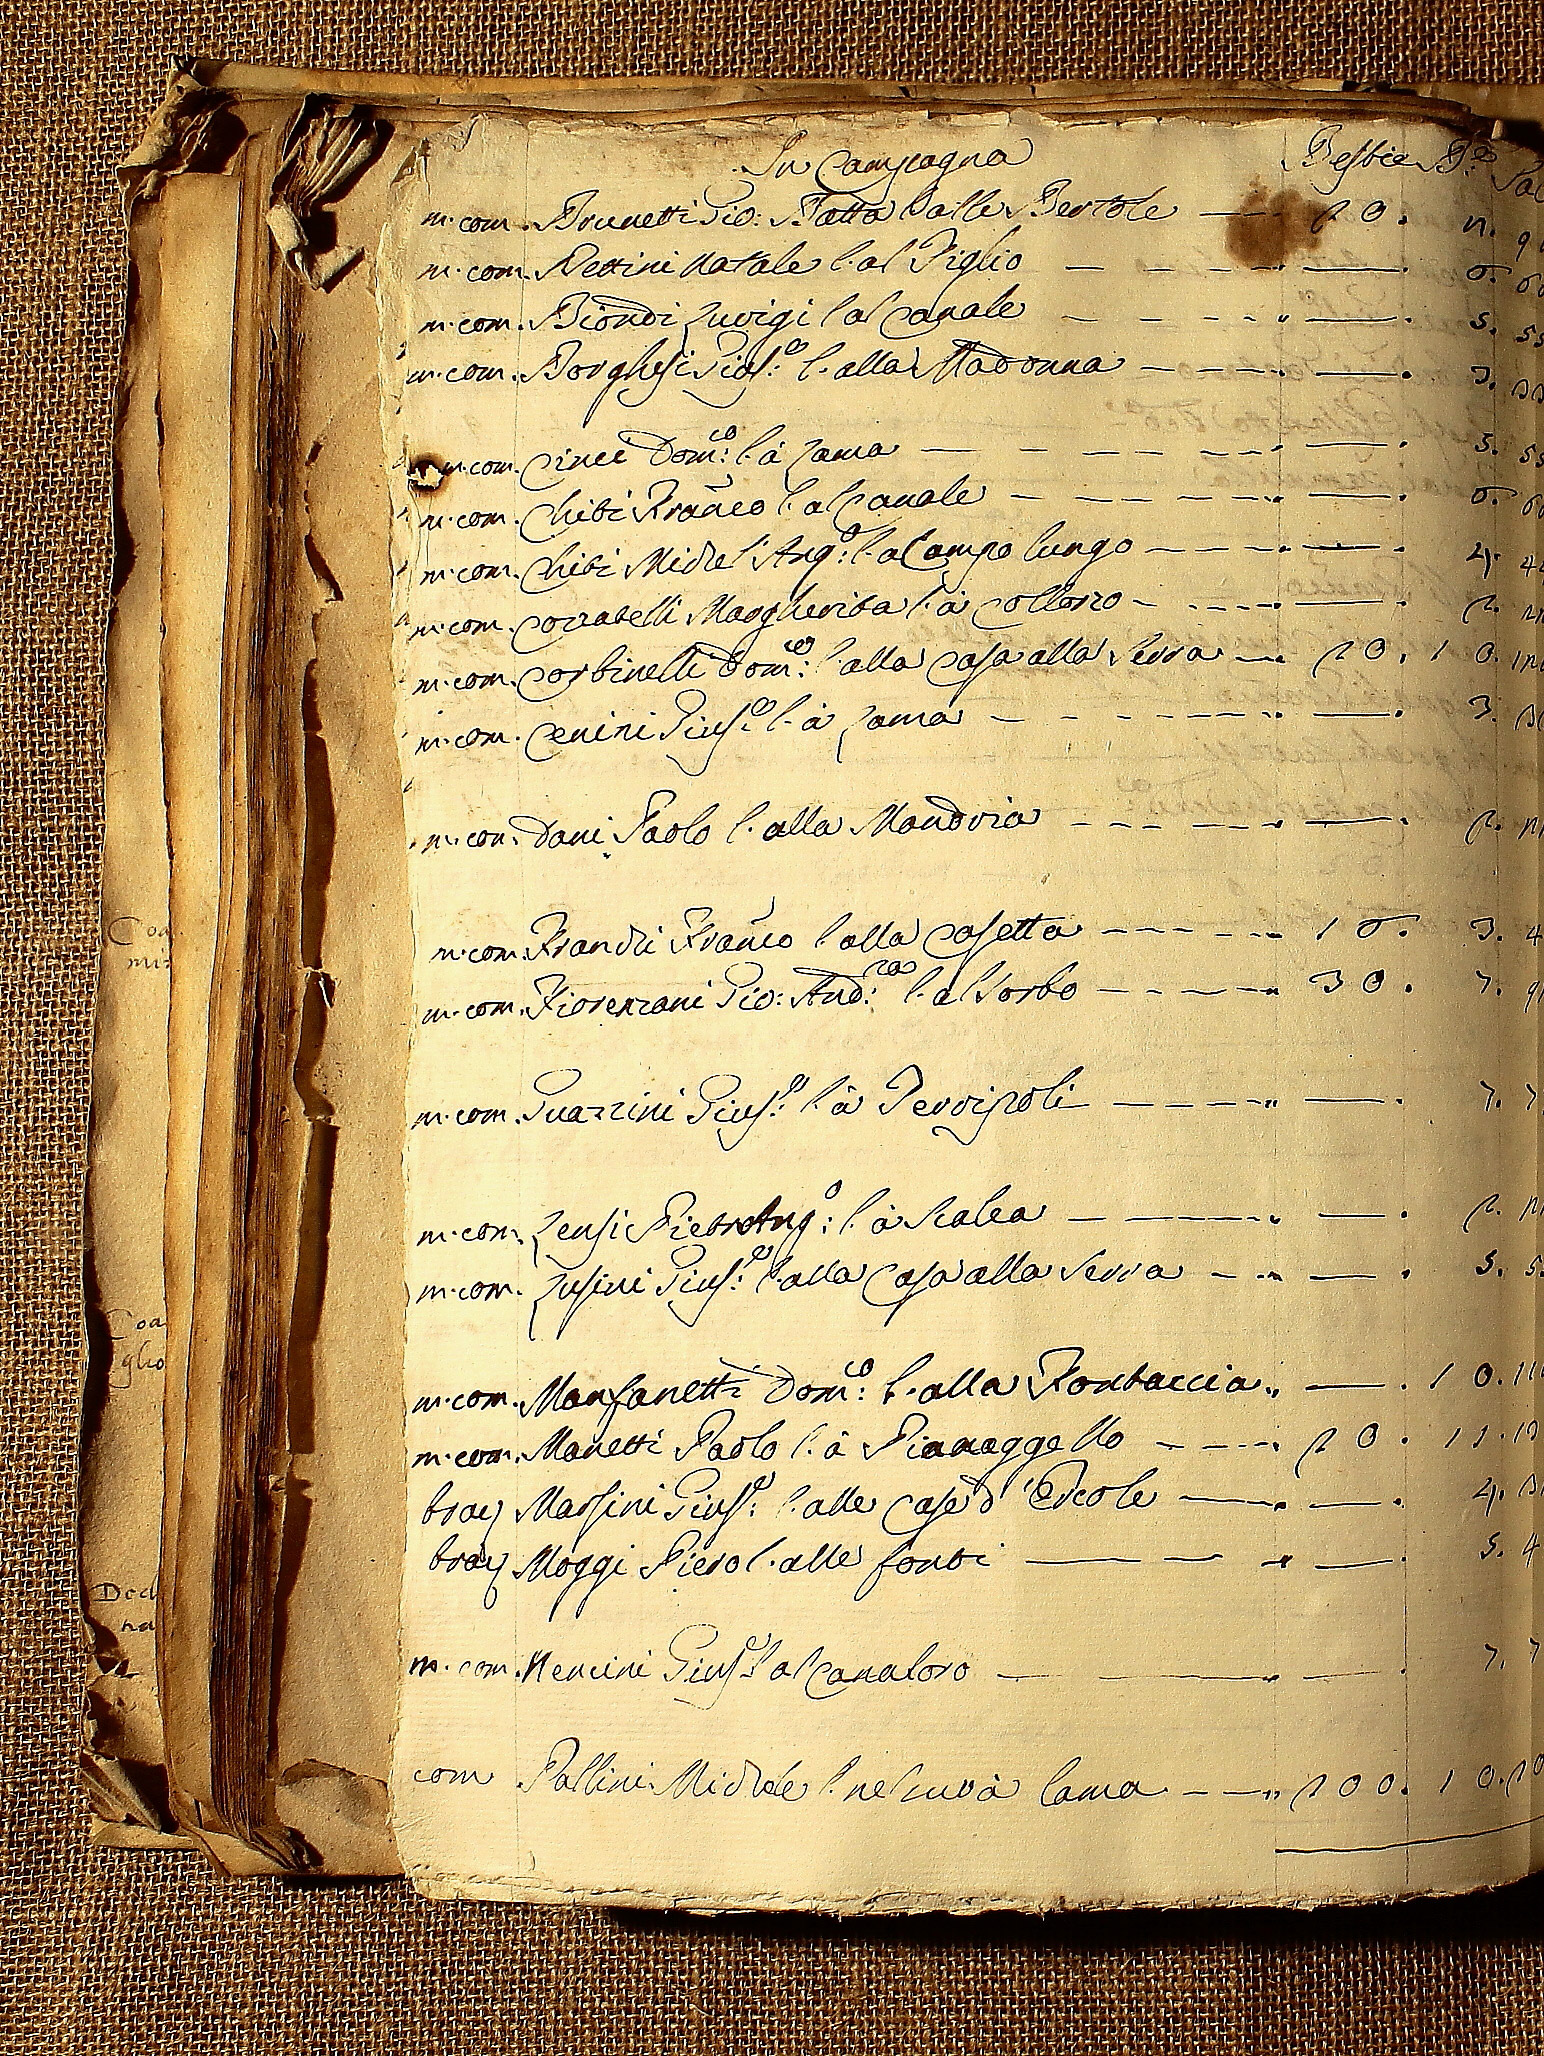 In Campagna Bestie B.e Sal
m. com. Brunetti Gio: Batta l. alle Bertole 20. n. 9
m. com. Bettini Natale l. al Piglio 6. 6
m. com. Biondi Luvigi l. al Canale 5. 55
m. com. Borghesi Gius.e l. alla Madonna 3. 33
m. com. Cinci Dom.co l. à Lama 5. 55
m. com. Chiti Franco l. al Canale 6. 6
m. com. Chiti Michel'Ang.o l. a Campo lungo 4. 44
m. com. Corratelli Margherita l. à Collorzo 2.
m. com. Corbinelli Dom.co l. alla Casa alla Serra 20. 10.
m. com. Cenini Gius.e l. à Lama 3.
m. com. Dani Paolo l. alla Mandria 2.
m. com. Franchi Franco l. alla Casetta 16. 3. 4
m. com. Fiorenzani Gio: And.rea l. al Sorbo 30. 7. 9
m. com. Guazzini Gius.e l. à Perripoli 7. 7
m. com. Lensi Pietr'Ang.o l. à Scalea 2.
m. com. Lusini Gius.e l. alla Casa alla Serra 5. 5
m. com. Manfanetti Dom.co l. alla Fontaccia 10. 11
m. com. Manetti Paolo l. à Pianaggello 20. 11.
brac Marsini Gius.e l. alle Case d'Ercole 4.
brac Moggi Piero l. alle fonti 5. 4
m. com. Nencini Gius.e l. al Canaloro 7. 7
com Pallini Michele l. nel à Lama 200. 10.
Coa
mi
Coa
glio
Dech
na